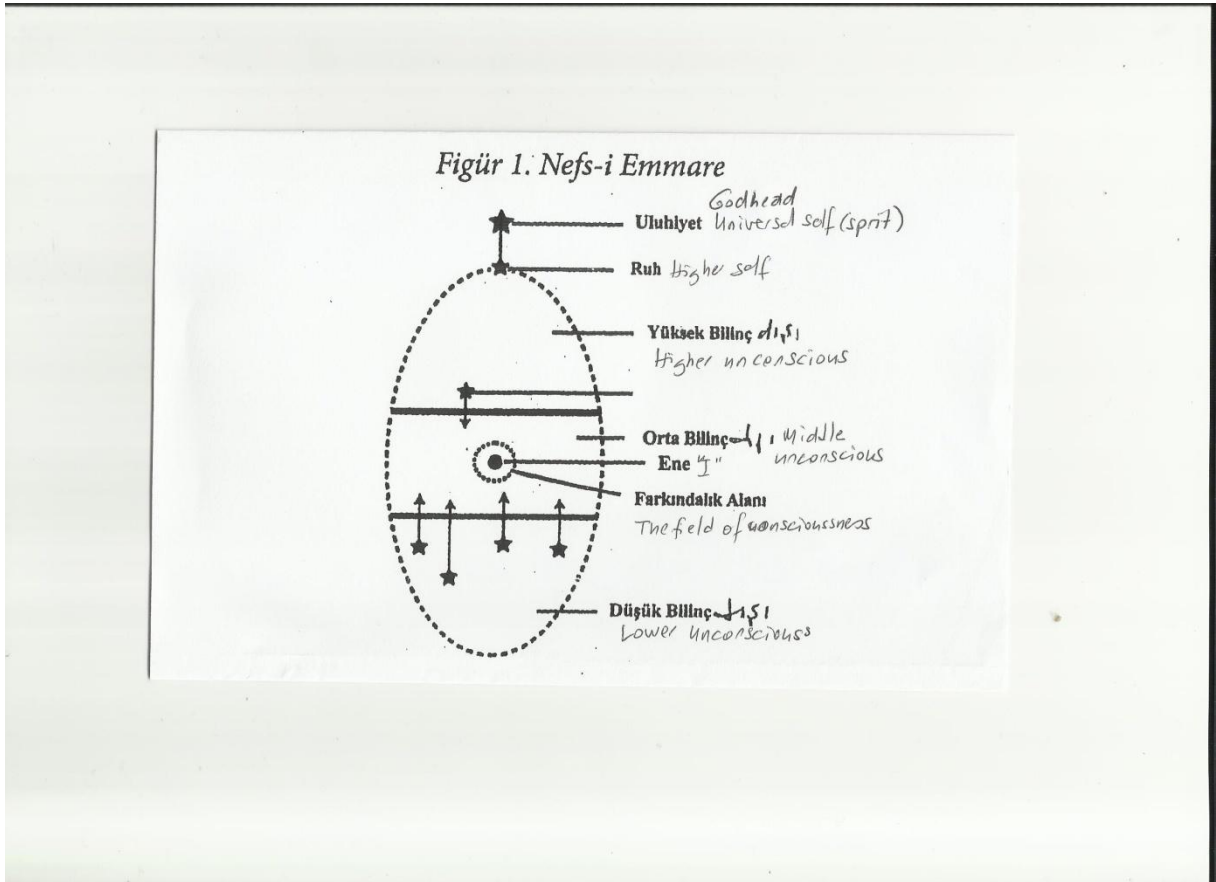 Figür 1. Nefs-i Emmare
Godhead
Uluhiyet Universal self (sprit)
Ruh Higher self
Yüksek Bilinç dışı
Higher unconscious
Orta Bilinç dışı Middle
unconscious
Ene "I"
Farkındalık Alanı
The field of conscioussness
Düşük Bilinç dışı
Lower unconsciouss